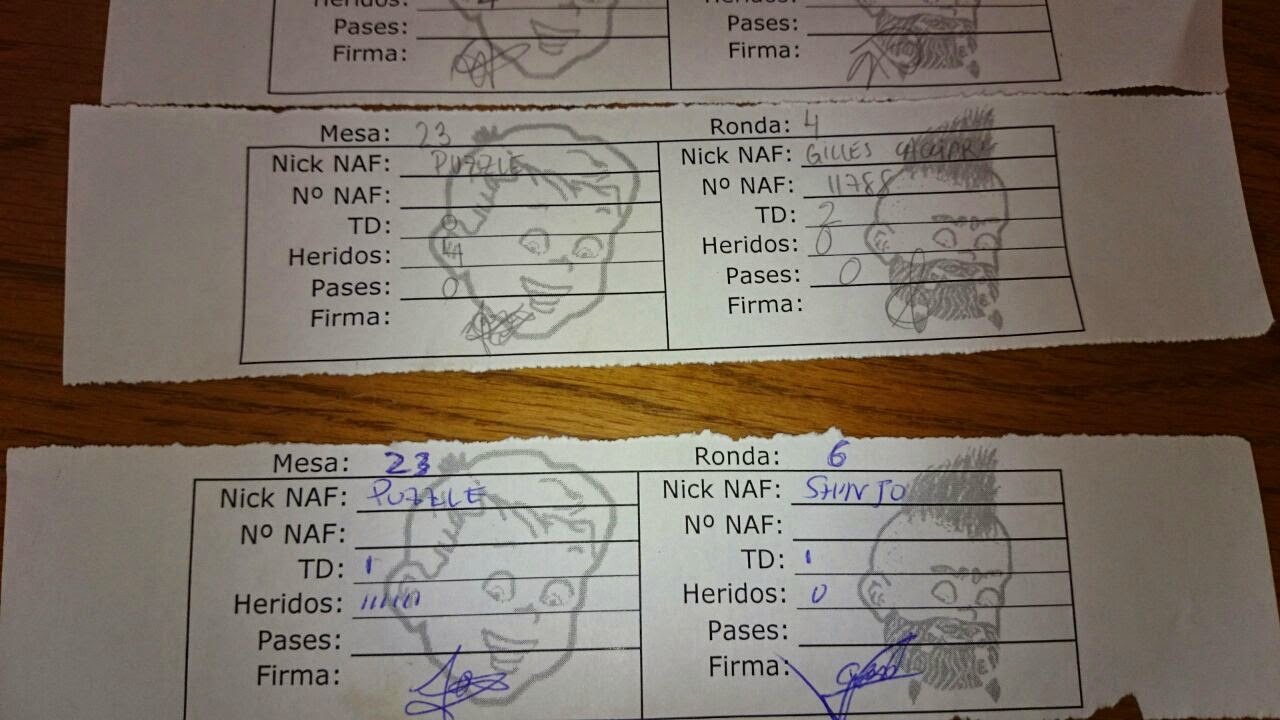 Heridos: 4 Heridos:
Pases: Pases:
Firma: Firma:
Mesa: 23 Ronda: 4
Nick NAF: PUZZLE Nick NAF: GILLES
Nº NAF: Nº NAF: 11788
TD: 0 TD: 2
Heridos: 4 Heridos: 0
Pases: 0 Pases: 0
Firma: Firma:
Mesa: 23 Ronda: 6
Nick NAF: PUZZLE Nick NAF: SHINJO
Nº NAF: Nº NAF:
TD: 1 TD: 1
Heridos: IIIIII Heridos: 0
Pases: Pases:
Firma: Firma: